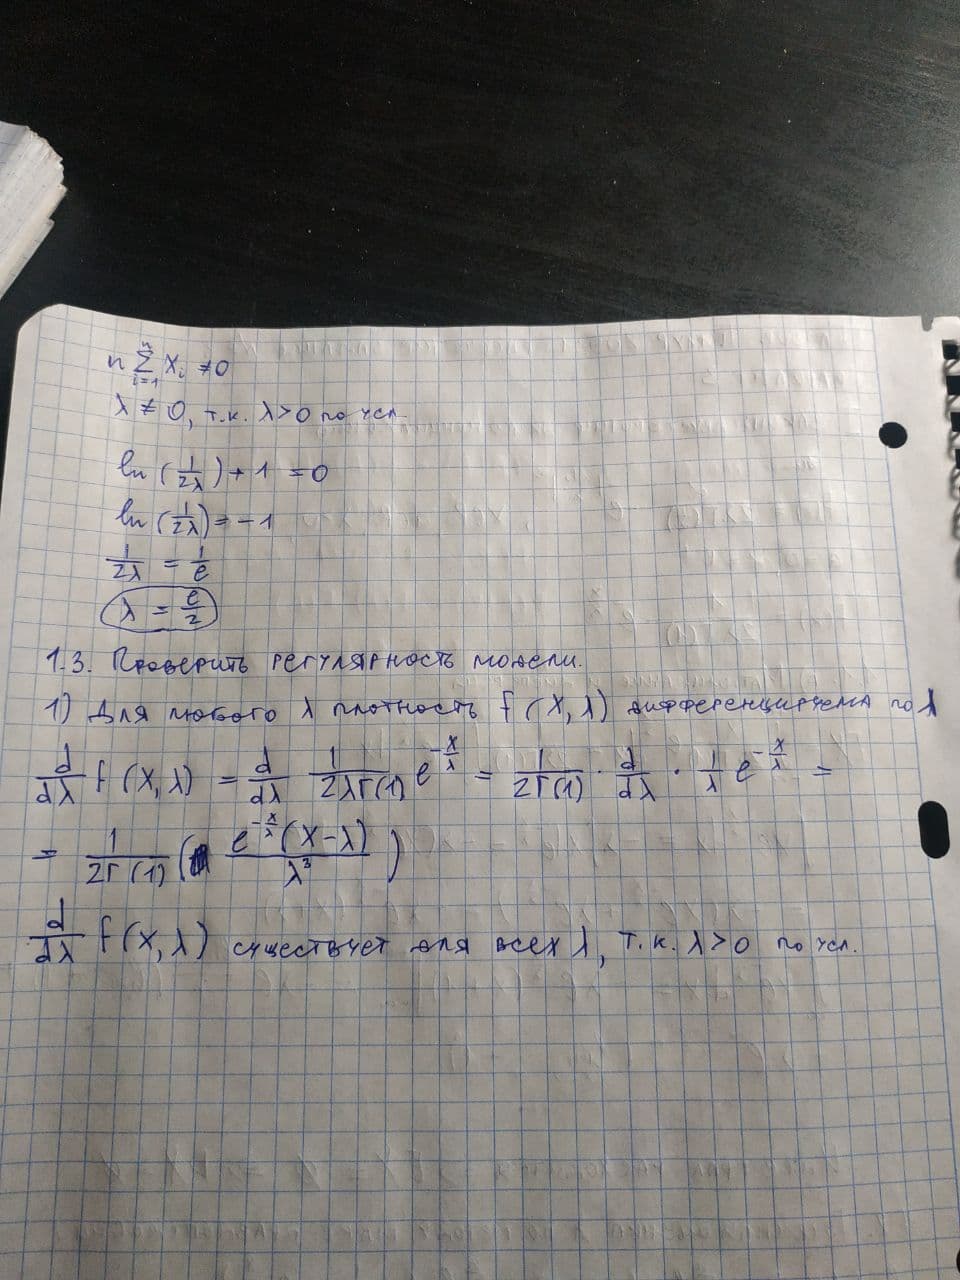 n ∑_{i=1}^{n} x_i ≠ 0
λ ≠ 0, т.к. λ > 0 по усл.
ln (1/2λ) + 1 = 0
ln (1/2λ) = -1
1/2λ = 1/e
λ = e/2
1.3. Проверить регулярность модели.
1) Для любого λ плотность f(x, λ) дифференцируема по λ
d/dλ f(x, λ) = d/dλ 1/(2λΓ(1)) e^{-x/λ} = 1/(2Γ(1)) · d/dλ · 1/λ e^{-x/λ} =
= 1/(2Γ(1)) (e^{-x/λ}(x-λ)/λ³)
d/dλ f(x, λ) существует для всех λ, т.к. λ > 0 по усл.